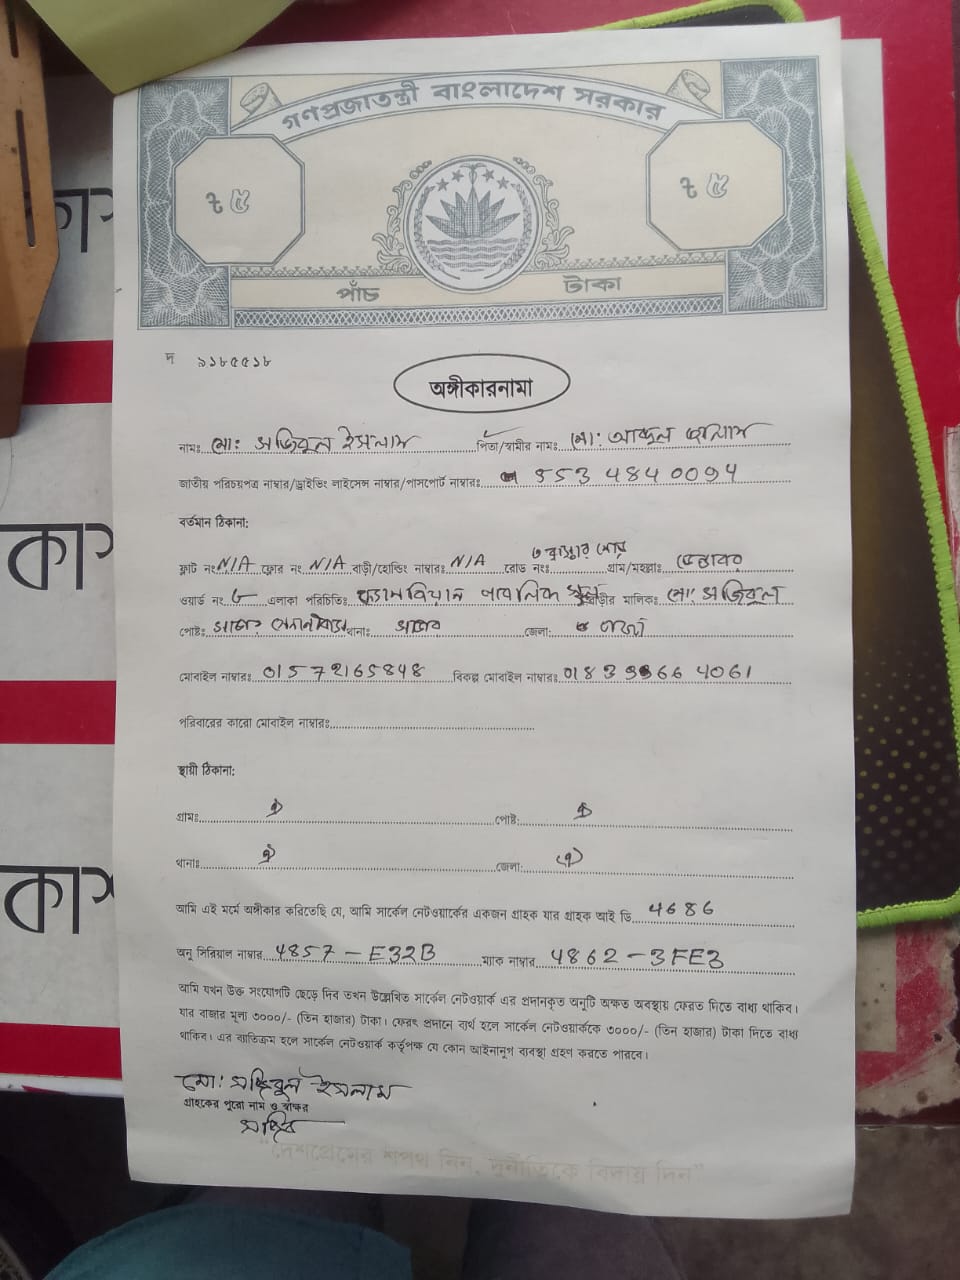 গণপ্রজাতন্ত্রী বাংলাদেশ সরকার
৳ ৫ ৳ ৫
পাঁচ টাকা
দ ৯১৮৫৫১৮
অঙ্গীকারনামা
নামঃ মো: সজিবুল ইসলাম পিতা/স্বামীর নাম: মো: আব্দুল
জাতীয় পরিচয়পত্র নাম্বার/ড্রাইভিং লাইসেন্স নাম্বার/পাসপোর্ট নাম্বারঃ 553 484 0094
বর্তমান ঠিকানা:
ফ্লাট নং N/A ফ্লোর নং N/A বাড়ী/হোল্ডিং নাম্বারঃ N/A রোড নংঃ গ্রাম/মহল্লাঃ
ওয়ার্ড নং এলাকা পরিচিতিঃ পাবলিক স্কুল বাড়ীর মালিকঃ মো: সজিবুল
পোষ্টঃ থানাঃ জেলা:
মোবাইল নাম্বারঃ 01572165848 বিকল্প মোবাইল নাম্বারঃ
পরিবারের কারো মোবাইল নাম্বারঃ
স্থায়ী ঠিকানা:
গ্রামঃ ঐ পোষ্ট: ঐ
থানাঃ ঐ জেলা: ঐ
আমি এই মর্মে অঙ্গীকার করিতেছি যে, আমি সার্কেল নেটওয়ার্কের একজন গ্রাহক যার গ্রাহক আই ডি 4686
অনু সিরিয়াল নাম্বার 4857 - E32B ম্যাক নাম্বার 4862 - 3FE3
আমি যখন উক্ত সংযোগটি ছেড়ে দিব তখন উল্লেখিত সার্কেল নেটওয়ার্ক এর প্রদানকৃত অনুটি অক্ষত অবস্থায় ফেরত দিতে বাধ্য থাকিব।
যার বাজার মূল্য ৩০০০/- (তিন হাজার) টাকা। ফেরৎ প্রদানে ব্যর্থ হলে সার্কেল নেটওয়ার্ককে ৩০০০/- (তিন হাজার) টাকা দিতে বাধ্য
থাকিব। এর ব্যতিক্রম হলে সার্কেল নেটওয়ার্ক কর্তৃপক্ষ যে কোন আইনানুগ ব্যবস্থা গ্রহণ করতে পারবে।
মো: সজিবুল ইসলাম
গ্রাহকের পুরো নাম ও স্বাক্ষর
সজিব
"দেশপ্রেমের শপথ নিন, দুর্নীতিকে বিদায় দিন"